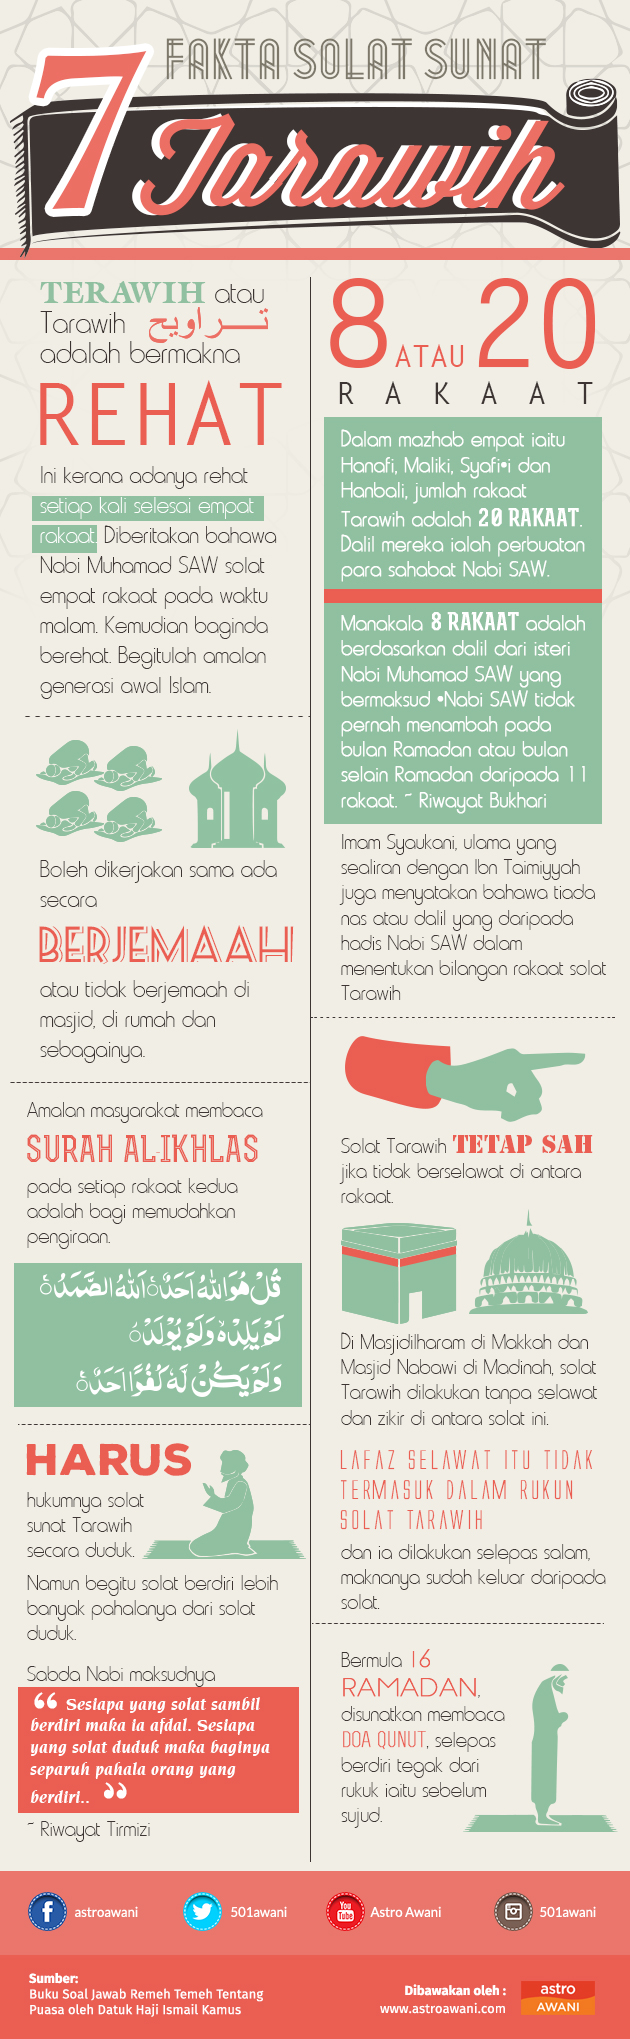 7 FAKTA SOLAT SUNAT
Tarawih
TERAWIH atau
Tarawih تـــراويح
adalah bermakna
REHAT
Ini kerana adanya rehat
setiap kali selesai empat
rakaat. Diberitakan bahawa
Nabi Muhamad SAW solat
empat rakaat pada waktu
malam. Kemudian baginda
berehat. Begitulah amalan
generasi awal Islam.
Boleh dikerjakan sama ada
secara
BERJEMAAH
atau tidak berjemaah di
masjid, di rumah dan
sebagainya.
Amalan masyarakat membaca
SURAH AL-IKHLAS
pada setiap rakaat kedua
adalah bagi memudahkan
pengiraan.
قُلْ هُوَ اللّٰهُ اَحَدٌ ۚ اَللّٰهُ الصَّمَدُ ۚ
لَمْ يَلِدْ ەۙ وَلَمْ يُوْلَدْ ۙ
وَلَمْ يَكُنْ لَّهٗ كُفُوًا اَحَدٌ ۚ
HARUS
hukumnya solat
sunat Tarawih
secara duduk.
Namun begitu solat berdiri lebih
banyak pahalanya dari solat
duduk.
Sabda Nabi maksudnya
“ Sesiapa yang solat sambil
berdiri maka ia afdal. Sesiapa
yang solat duduk maka baginya
separuh pahala orang yang
berdiri.. ”
~ Riwayat Tirmizi
8 ATAU 20
RAKAAT
Dalam mazhab empat iaitu
Hanafi, Maliki, Syafi•i dan
Hanbali, jumlah rakaat
Tarawih adalah 20 RAKAAT.
Dalil mereka ialah perbuatan
para sahabat Nabi SAW.
Manakala 8 RAKAAT adalah
berdasarkan dalil dari isteri
Nabi Muhamad SAW yang
bermaksud •Nabi SAW tidak
pernah menambah pada
bulan Ramadan atau bulan
selain Ramadan daripada 11
rakaat. ~ Riwayat Bukhari
Imam Syaukani, ulama yang
sealiran dengan Ibn Taimiyyah
juga menyatakan bahawa tiada
nas atau dalil yang daripada
hadis Nabi SAW dalam
menentukan bilangan rakaat solat
Tarawih
Solat Tarawih TETAP SAH
jika tidak berselawat di antara
rakaat.
Di Masjidilharam di Makkah dan
Masjid Nabawi di Madinah, solat
Tarawih dilakukan tanpa selawat
dan zikir di antara solat ini.
LAFAZ SELAWAT ITU TIDAK
TERMASUK DALAM RUKUN
SOLAT TARAWIH
dan ia dilakukan selepas salam,
maknanya sudah keluar daripada
solat.
Bermula 16
RAMADAN,
disunatkan membaca
DOA QUNUT, selepas
berdiri tegak dari
rukuk iaitu sebelum
sujud.
astroawani
501awani
You Tube Astro Awani
501awani
Sumber:
Buku Soal Jawab Remeh Temeh Tentang
Puasa oleh Datuk Haji Ismail Kamus
Dibawakan oleh :
www.astroawani.com
astro
AWANI